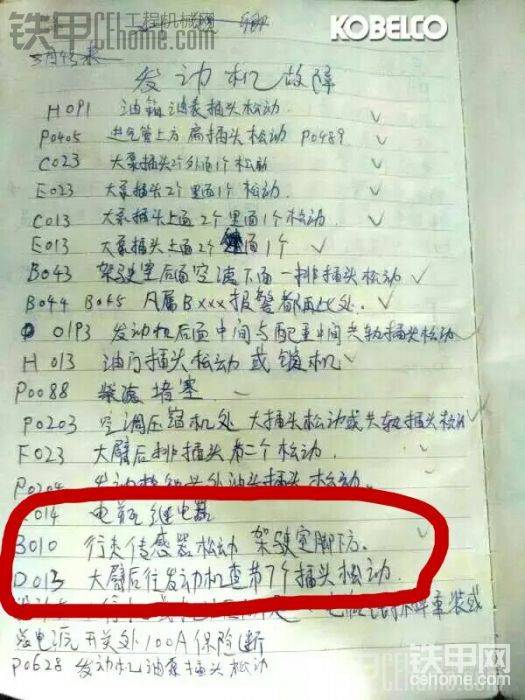 铁甲 工程机械网
CEhome.com
KOBELCO
发动机故障
H091 油箱油表插头松动
P0405 进气管上方扁插头松动 P0489
C023 大泵插头2个外面1个松动
E023 大泵插头2个里面1个松动
C013 大泵插头上面2个里面1个松动
E013 大泵插头上面2个 面1个
B043 驾驶室后面空滤下面一排插头松动
B044 B045 凡属Bxxx报警都再此处
0193 发动机后面中间与配重中间夹轨插头松动
H013 油门插头松动或锁机
P0088 柴滤堵塞
P0203 空调压缩机处大插头松动或头轨插头松动
F023 大臂后排插头第二个松动
P0204 发动机 油头插头松动
D014 电瓶继电器
B010 行走传感器松动 驾驶室脚下方
D013 大臂后往发动机查第7个插头松动
电瓶 重装或
总电源开关处100A保险断
P0628 发动机油泵插头松动
铁甲网
CEhome.com